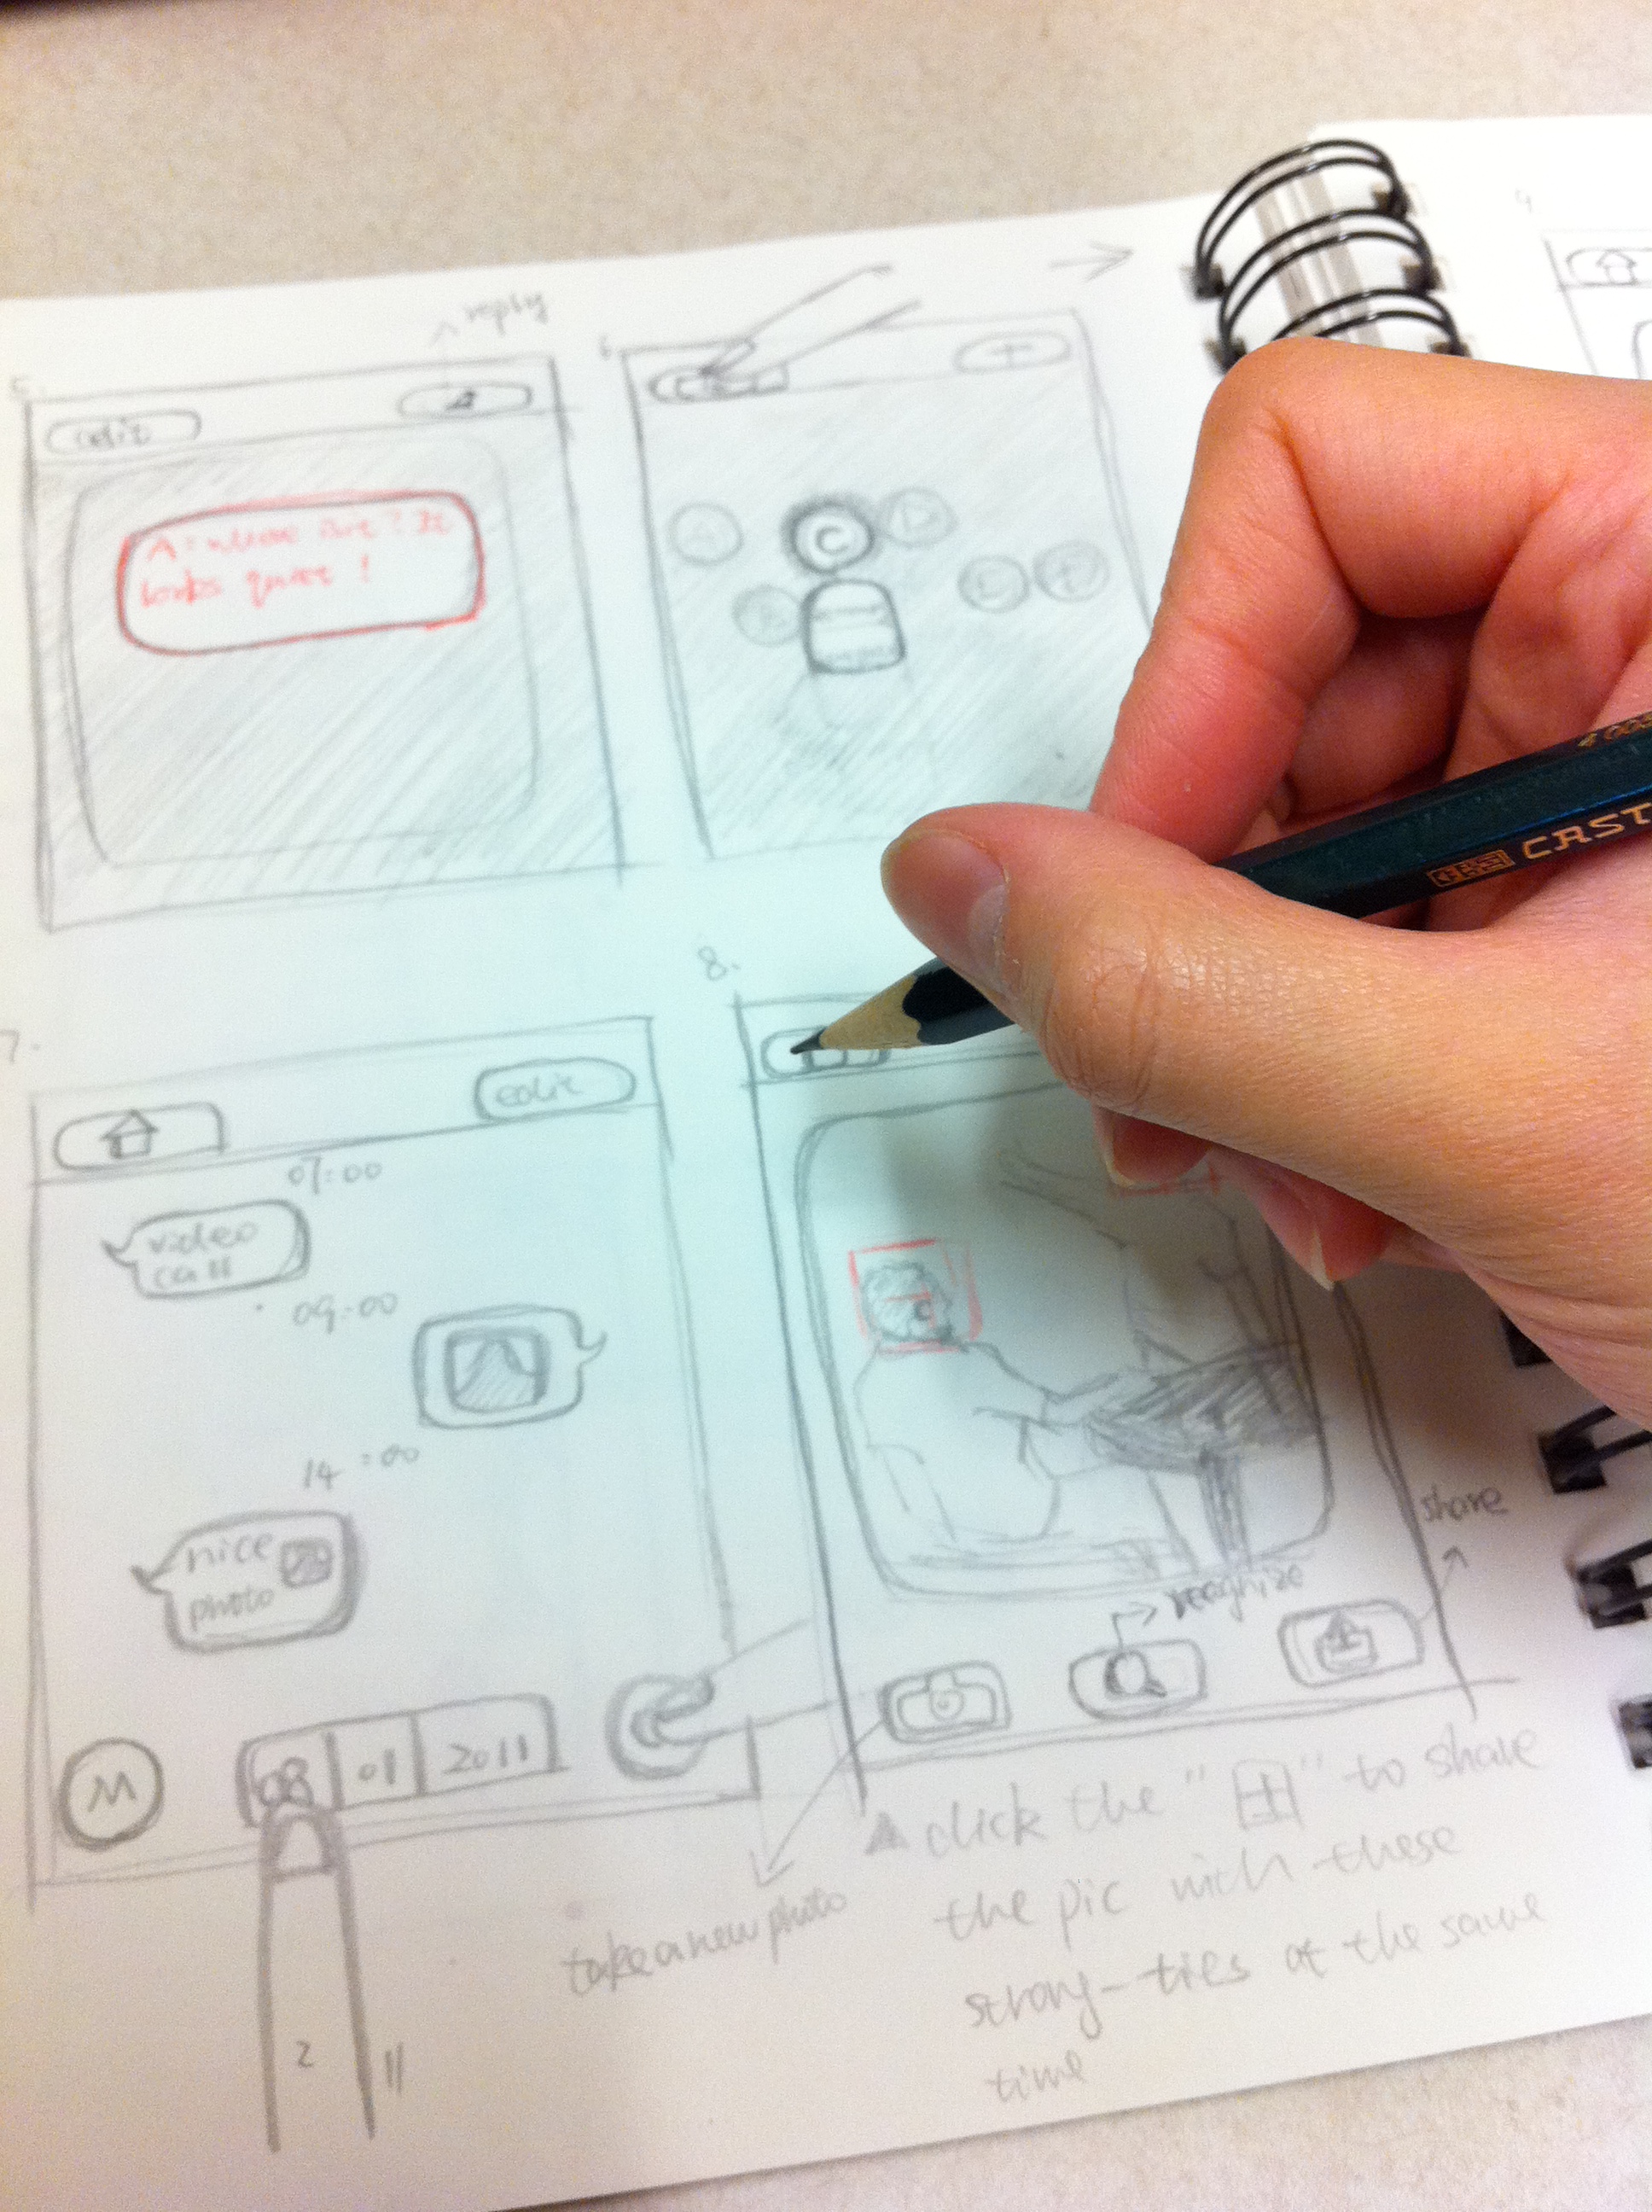 reply
5.
edit
A: where is it? It
looks quiet!
6.
+
A
C
D
B
E
F
7.
edit
07:00
video
call
09:00
14:00
nice
photo
M
08 01 2011
2
11
8.
share
recognize
take a new photo
click the "+" to share
the pic with these
strong-ties at the same
time
9
CAST